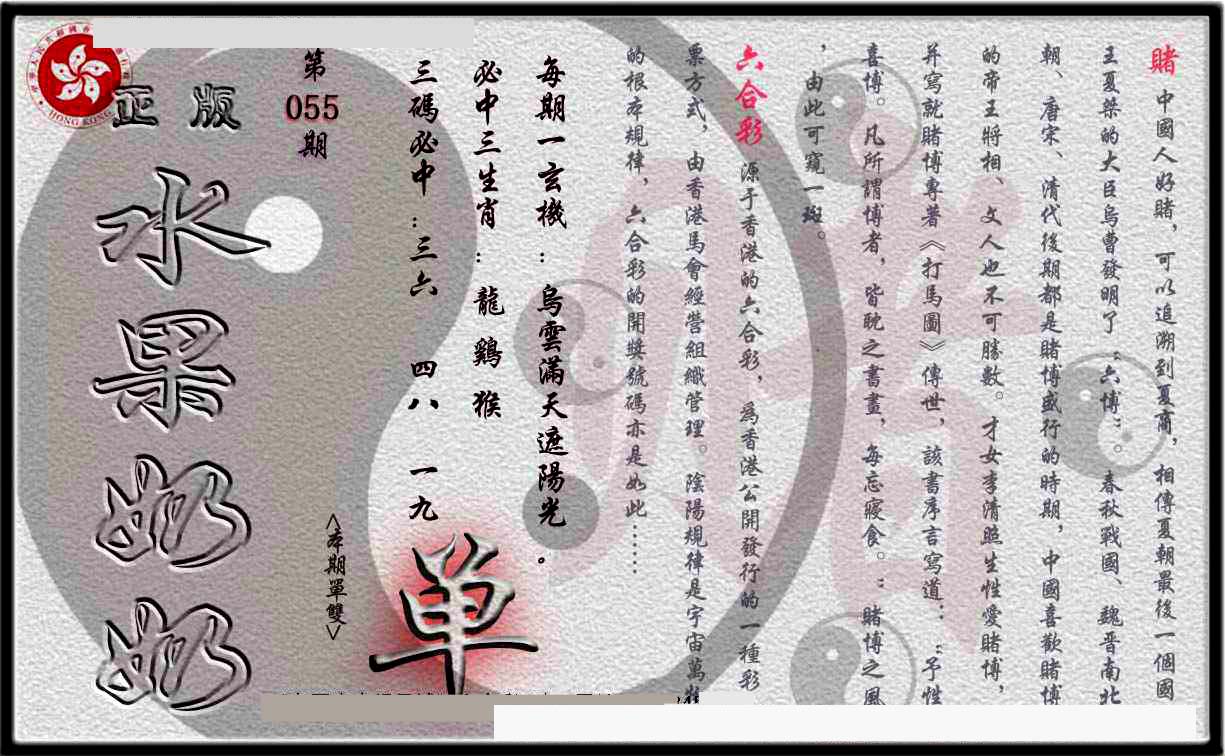 賭 中國人好賭，可以追溯到夏商，相傳夏朝最後一個國
王夏桀的大臣烏曹發明了“六博”。春秋戰國、魏晋南北
朝、唐宋、清代後期都是賭博盛行的時期，中國喜歡賭博
的帝王將相、文人也不可勝數。才女李清照生性愛賭博，
并寫就賭博專著《打馬圖》傳世，該書序言寫道：“予性
喜博。凡所謂博者，皆耽之晝夜，每忘寢食。”賭博之風
，由此可窺一斑。
六合彩 源于香港的六合彩，為香港公開發行的一種彩
票方式，由香港馬會經營組織管理。陰陽規律是宇宙萬物
的根本規律，六合彩的開獎號碼亦是如此……
每期一玄機：烏雲滿天遮陽光。
必中三生肖：龍鷄猴
三碼必中：三六 四八 一九
第
055
期
<本期單雙>
单
正版
水果奶奶
HONG KONG